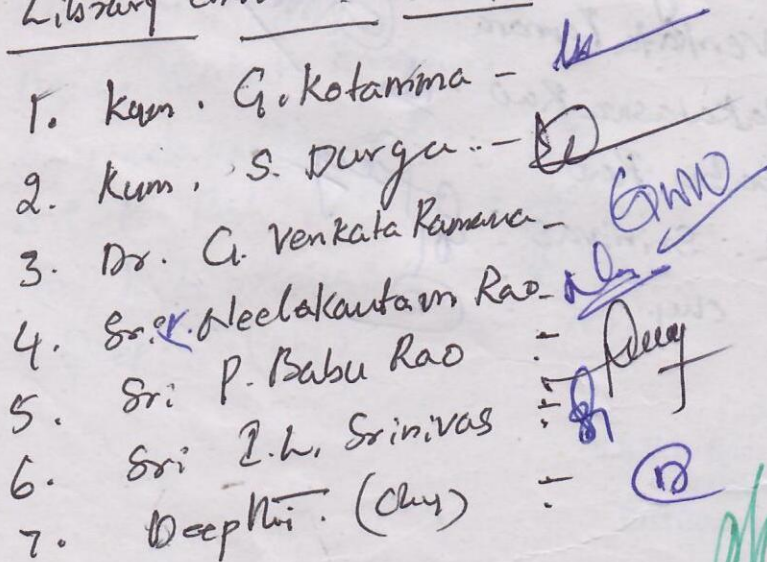 Library
1. Kum. G. Kotamma -
2. Kum. S. Durga :-
3. Dr. G. Venkata Ramana -
4. Sri K. Neelakantam Rao -
5. Sri P. Babu Rao :-
6. Sri I.L. Srinivas :-
7. Deepthi. (Chy) :-